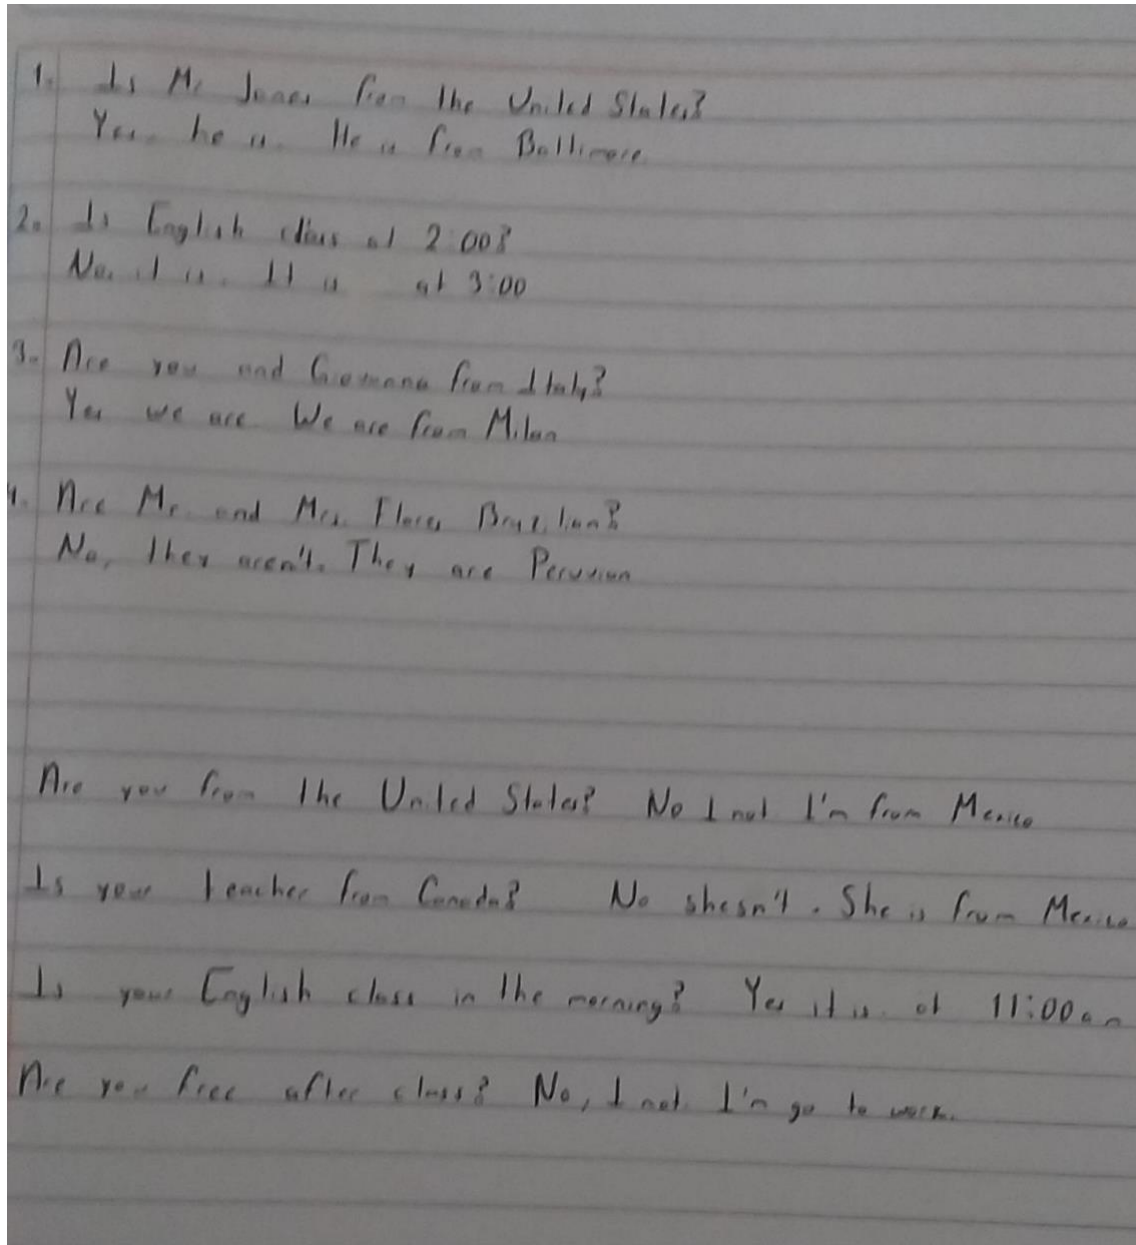 1. Is Mr Jones from the United States?
Yes. he is. He is from Baltimore.
2. Is English class at 2:00?
No. it is. It is at 3:00
3. Are you and Gemana from Italy?
Yes we are. We are from Milan
4. Are Mr. and Mrs. Flores Brazilian?
No, they aren't. They are Peruvian
Are you from the United States? No I not I'm from Mexico
Is your teacher from Canada? No shesn't. She is from Mexico
Is your English class in the morning? Yes it is. at 11:00am
Are you free after class? No, I not. I'm go to work.